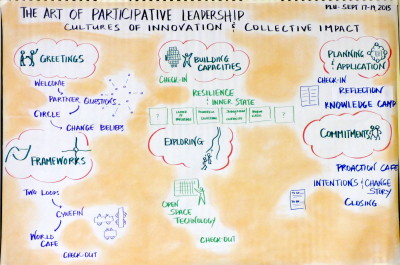 THE ART OF PARTICIPATIVE LEADERSHIP
PLU - SEPT 17-19 2015
CULTURES OF INNOVATION & COLLECTIVE IMPACT
GREETINGS
WELCOME
PARTNER QUESTIONS
CIRCLE
CHANGE BELIEFS
FRAMEWORKS
TWO LOOPS
CYNEFIN
WORLD
CAFE
CHECK-OUT
BUILDING
CAPACITIES
CHECK-IN
RESILIENCE
& INNER STATE
?
?
EXPLORING
OPEN
SPACE
TECHNOLOGY
CHECK-OUT
PLANNING
& APPLICATION
CHECK-IN
REFLECTION
KNOWLEDGE CAMP
COMMITMENTS
PROACTION CAFE
INTENTIONS & CHANGE
STORY
CLOSING